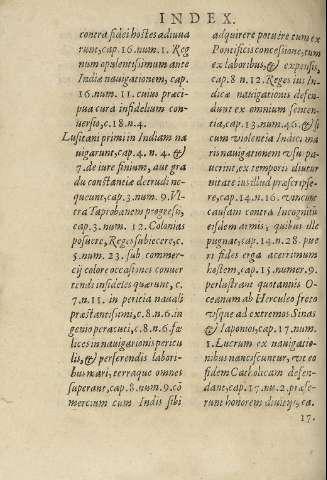 INDEX.
contra fidei hostes adiuua
runt, cap. 16. num. 1. Reg
num opulentissimum ante
Indiæ nauigationem, cap.
16. num. 11. cuius præci-
pua cura infidelium con-
uersio, c. 18. n. 4.
Lusitani primi in Indiam na
uigarunt, cap. 4. n. 4. &
7. de iure finium, aut gra
du constantiæ detrudi ne-
queunt, cap. 3. num. 9. Vl-
tra Taprobanem progressi,
cap. 3. num. 12. Colonias
posuere, Reges subiecere, c.
5. num. 23. sub commer-
cij colore occasiones conuer
tendi infideles quærunt, c.
7. n. 11. in peritia nauali
præstantissimi, c. 8. n. 6. in
genio peracuti, c. 8. n. 6. fæ
lices in nauigationis pericu
lis, & perferendis labori-
bus mari, terraque omnes
superant, cap. 8. num. 9. cō
mercium cum Indis sibi
adquirere potuere tum ex
Pontificis concesione, tum
ex laboribus, & expensis,
cap. 8 n. 12. Reges ius In-
dicæ nauigationis defen-
dunt ex omnium senten-
tia, cap. 13. num. 46. & si
cum violentia Indici ma
ris nauigationem vsu pa-
uerint, ex temporis diutur
nitate in illud præscripse-
re, cap. 14. n. 16. vnione
causam contra Incognitū
eisdem armis, quibus ille
pugnae, cap. 14. n. 28. pue
ri fides erga acerrimum
hostem, cap. 15. numer. 9.
perlustrant quotannis O-
ceanum ab Herculeo freto
vsque ad extremos Sinas
& Iaponios, cap. 17. num.
1. Lucrum ex nauigatio-
nibus nanciscuntur, vt eo
fidem Catholicam defen-
dant, cap. 17. nu. 2. præfe-
runt honorem diuitijs, ca.
17.